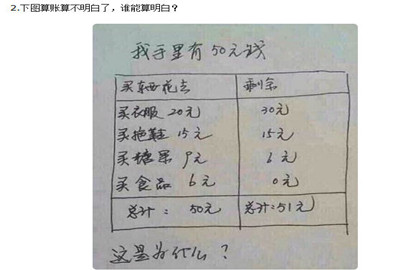 2.下图算账算不明白了，谁能算明白？
我手里有50元钱
买东西花去 剩余
买衣服 20元 30元
买拖鞋 15元 15元
买糖果 9元 6元
买食品 6元 0元
总计： 50元 总计：51元
这是为什么？